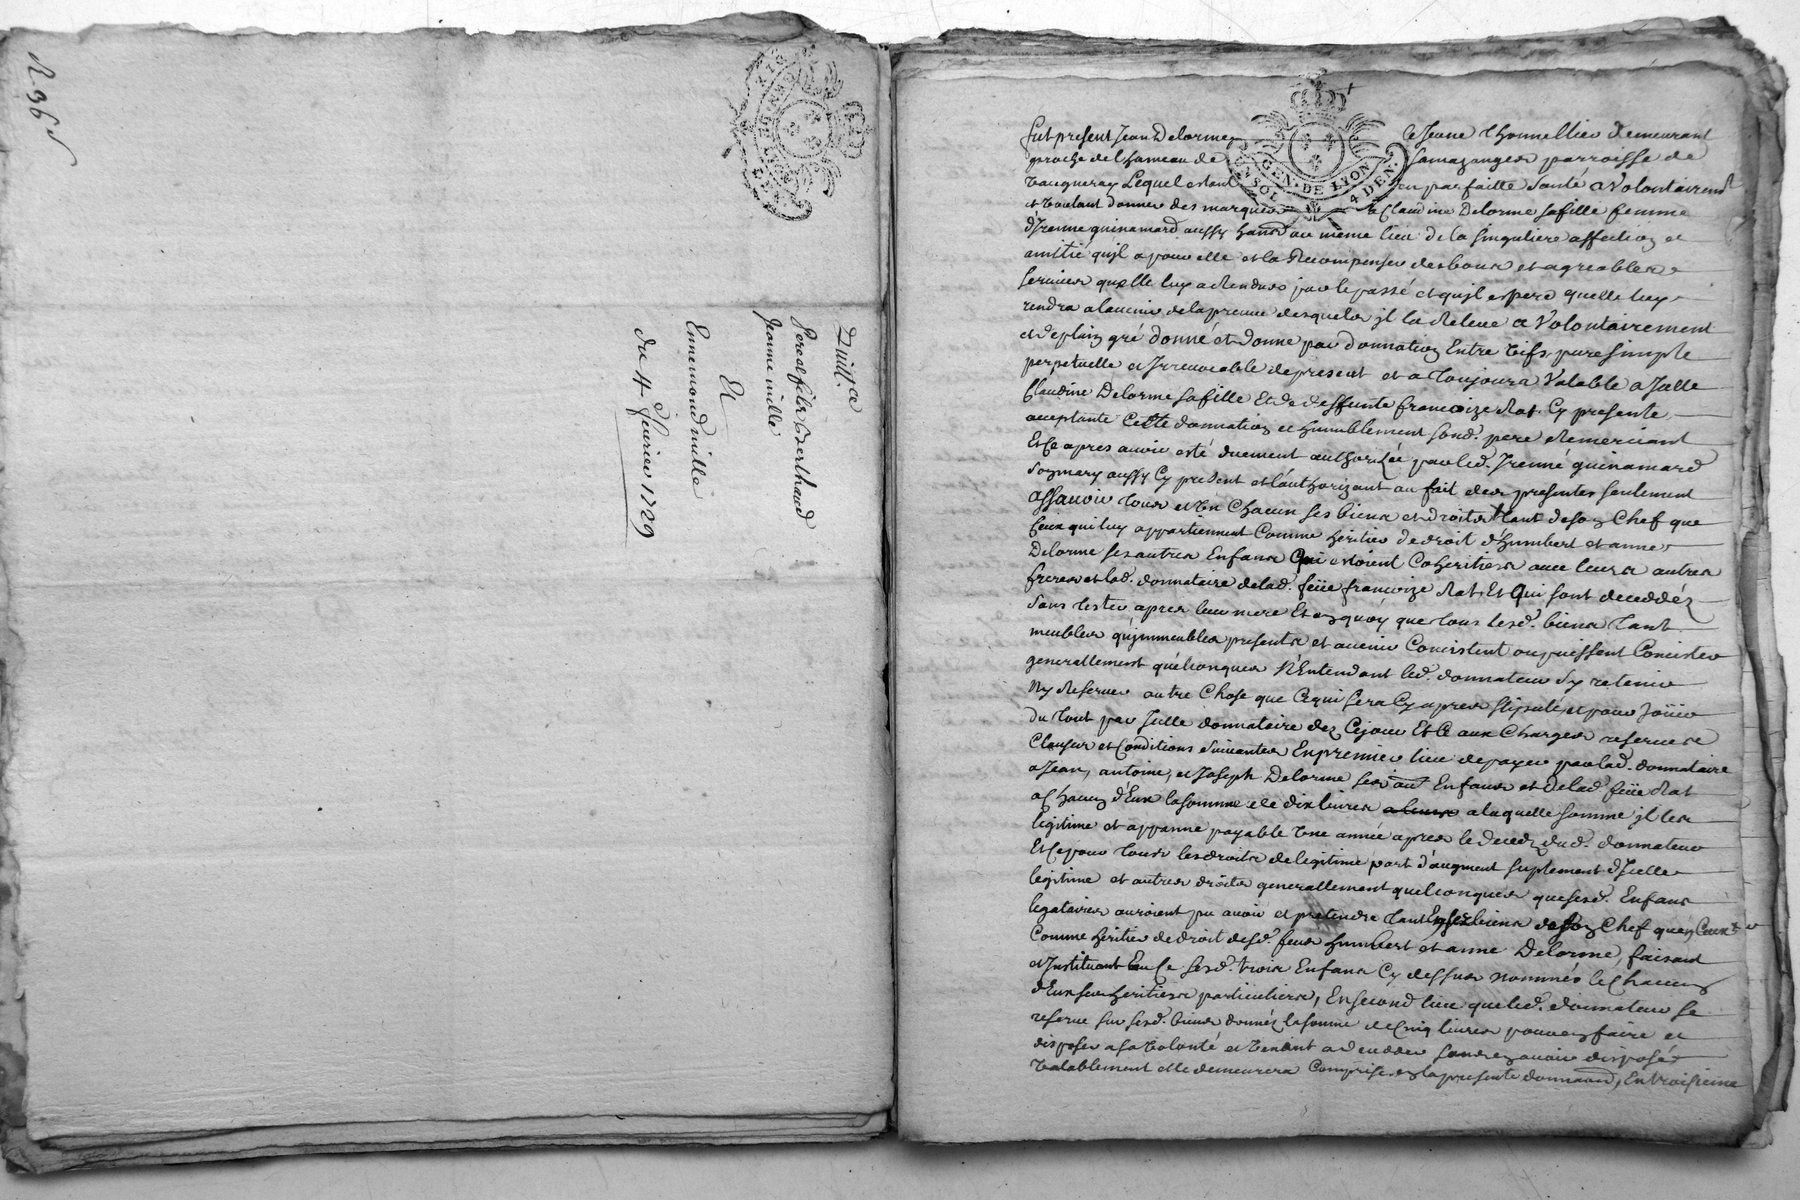 R 36s
Quitt.ce
Pere et fils Berthaud
Jeanne mille
Et
Ennemond mille
du 4 feurier 1729
GEN. DE LYON
4 DEN.
fut present Jean Delorme le Jeune thonnellier demeurant
proche de lhameau de parroisse de
Vaugneray Lequel estant en parfaitte santé a Volontairemt
et voulant donner des marques a Claudine Delorme sa fille femme
d'Irenné guinamard aussy habt au même lieu de la singuliere affection et
amitié qu'il a pour elle et la Recompenser des bons et agreables
seruices qu'elle luy a Rendues par le passé et qu'il espere quelle luy
rendra alauenir de la preuue desquels jl la Releue a Volontairement
et de plain gré donné et donne par donnation Entre Vifs pure simple
perpetuelle et Irreuocable de present et a toujours Valable a Jcelle
Claudine Delorme sa fille Et de deffunte francoize Rat Cy presente
acceptante Cette donnation et humblement sond. pere Remerciant
Et Ce apres auoir esté duement authorizée par led. Irenné guinamard
son mary aussy Cy present et l'authorizant au fait des presentes seulement
assauoir tous et Vn Chacun ses biens et droits tant de son Chef que
Ceux qui luy appartiennent Comme heritier de droit d'humbert et anne
Delorme ses autres Enfans Qui estoient Coheritiers auec leurs autres
freres et lad. donnataire de lad. feüe francoize Rat, Et Qui sont deceddéz
sans tester apres leur mere Et en quóy que tous lesd. biens tant
meubles qu'jmmeubles presents et auenir Concistent ou puissent Concister
generallement quelconques N'Entendant led. donnateur s'y retenir
Ny Reseruer autre Chose que Ce qui sera Cy apres stipulé, et pour Joüir
du tout par Jcelle donnataire dez Cejour Et Ce aux Charges reserues
Clauses et Conditions suiuantes En premier lieu de payer par lad. donnataire
a Jean, antoine, et Joseph Delorme ses aut Enfans et de lad. feüe Rat
a Chacun d'Eux la somme de dix liures a laquelle somme jl les
legitime et appanne payable Vne année apres le decez dud. donnateur
Et Ce pour tous les droits de legitime part d'augment suplement d'Jcelle
legitime et autres droits generallement quelconques que sesd. Enfans
legataires auroient pu auoir et pretendre tant En ses biens de son Chef qu'en Ceux
Comme heritier de droit desd. feus humbert et anne Delorme, faisant
et Instituant En Ce sesd. trois Enfans Cy dessus nommés le Chacun
d'Eux ses heritiers particuliers, En second lieu que led. donnateur se
reserue sur sesd. biens donnéz la somme de Cinq liures pour en faire et
disposer a sa Volonté et Venant a decedder sans en auoir disposé
Valablement elle demeurera Comprise en la presente donnaon, En troisieme